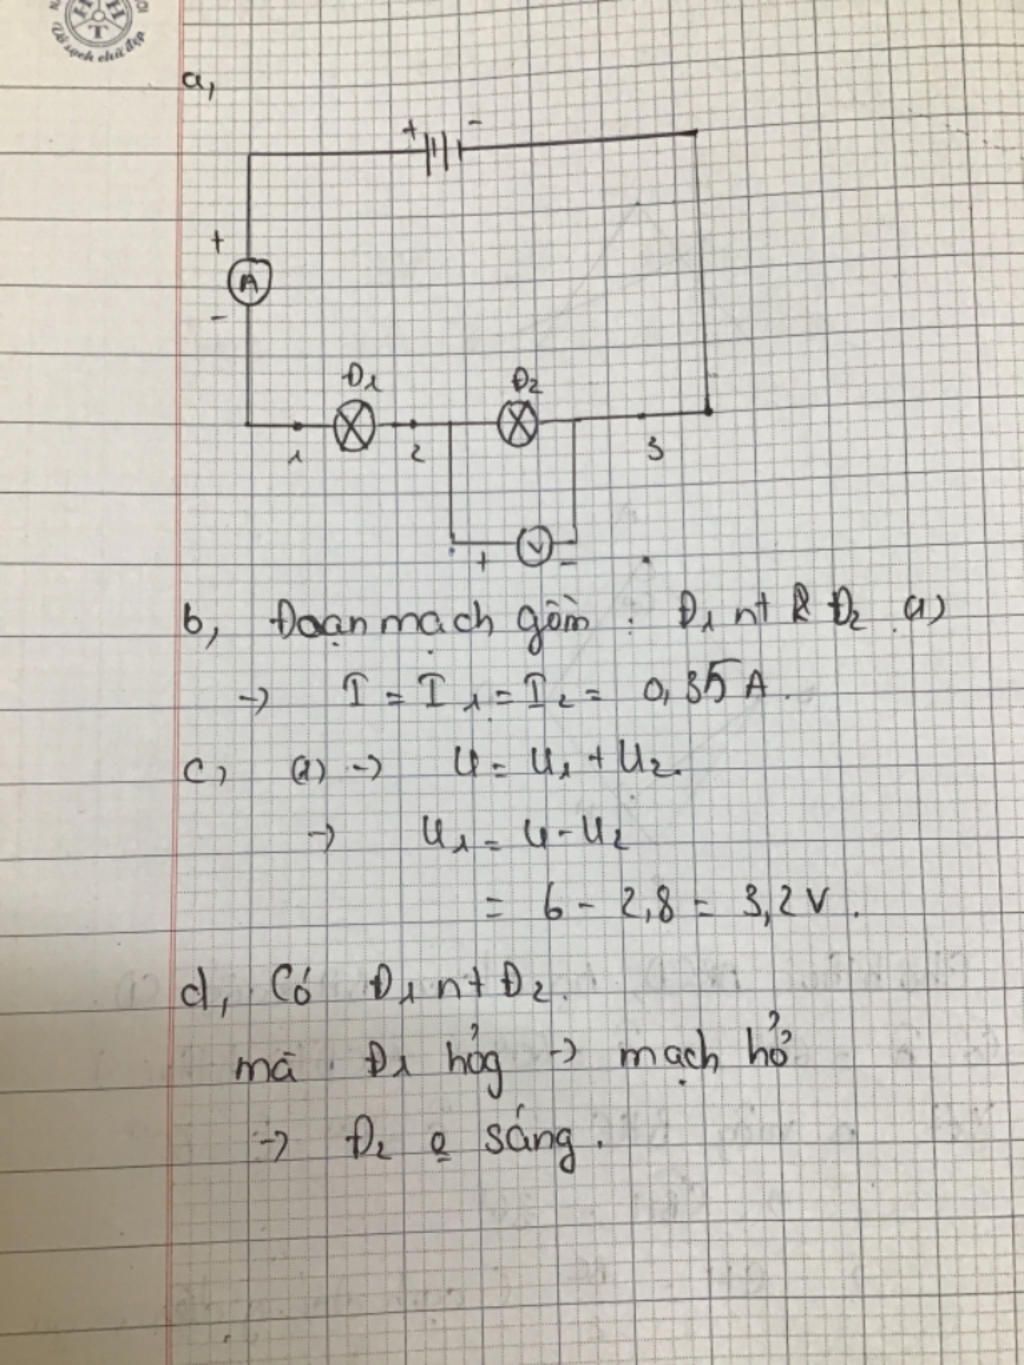 Vở sạch chữ đẹp
a,
+ -
+
A
-
Đ1 Đ2
1 2 3
+ V -
b, Đoạn mạch gồm : Đ1 nt Đ2 (1)
→ I = I1 = I2 = 0,35 A.
c, (1) → U = U1 + U2.
→ U1 = U - U2
= 6 - 2,8 = 3,2 V.
d, Có Đ1 nt Đ2.
mà Đ1 hỏg → mạch hở
→ Đ2 sáng.